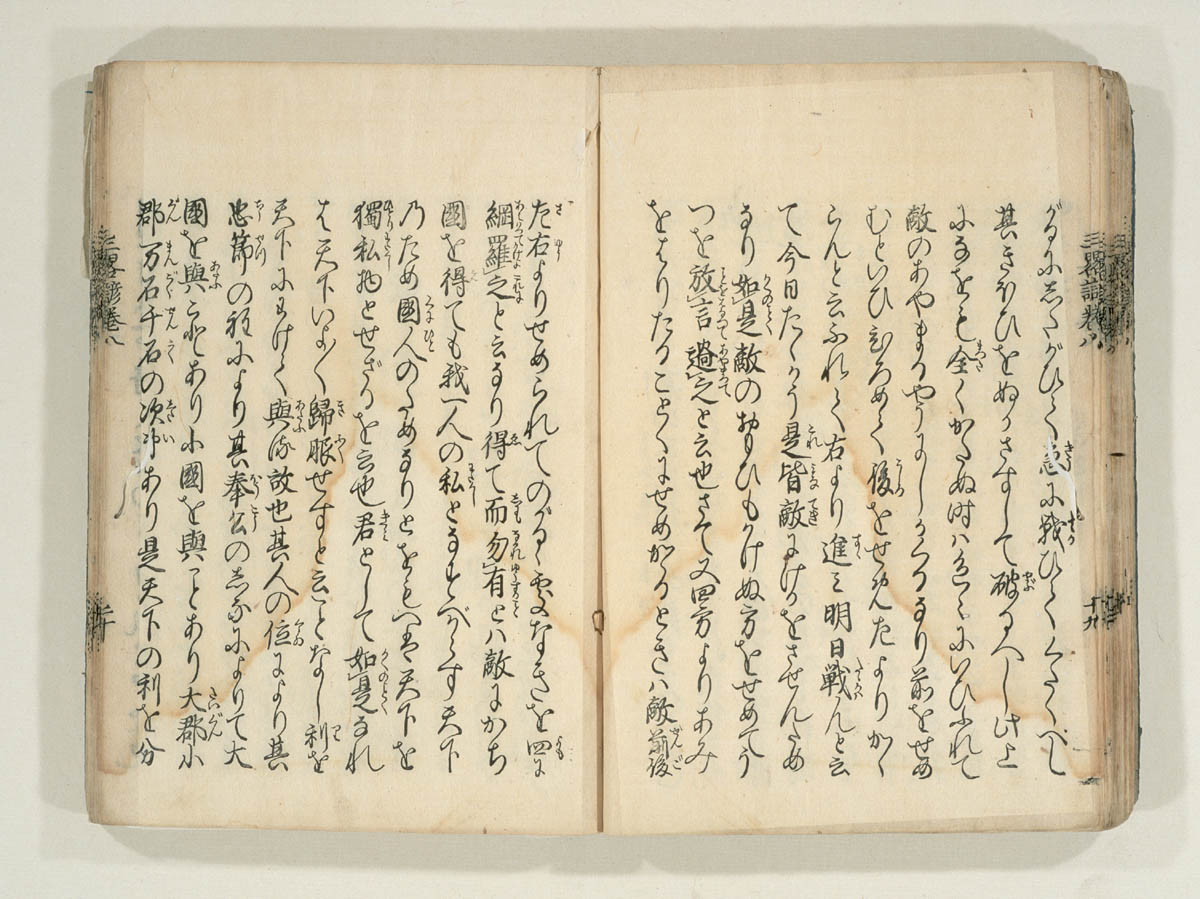 がるにしたがひて急に戦ひてくだくべし
其きほひをぬかさずして破るべし此上
にするをも全くかたぬ時ハ色々にいひふれて
敵のあやまるやうにしかくるなり前をせめ
むといひひろめて後をせめ左よりかゝ
らんと云ふれて右より進ミ明日戦んと云
て今日たゝかう是皆敵にまけをさせんため
なり如是敵のおもひもかけぬ方をせめてう
つを放言過之と云也さて又四方よりあみ
をはりたることくにせめかるときハ敵前後
左右よりせめられてのがるゝ処なきを四に
網羅之と云なり得て而勿有とハ敵にかち
國を得ても我一人の私となすべからす天下
乃ため國人のためなりとをもへハ天下を
獨私物とせざるを云也君として如是なれ
は天下いよく歸服せすと云ことなし利を
天下にわけて與る故也其人の位により其
忠節の程により其奉公のしなによりて大
國を與ことあり小國を與ことあり大郡小
郡万石千石の次第あり是天下の利を分
三畧諺巻八
十九
三畧諺巻八
二十